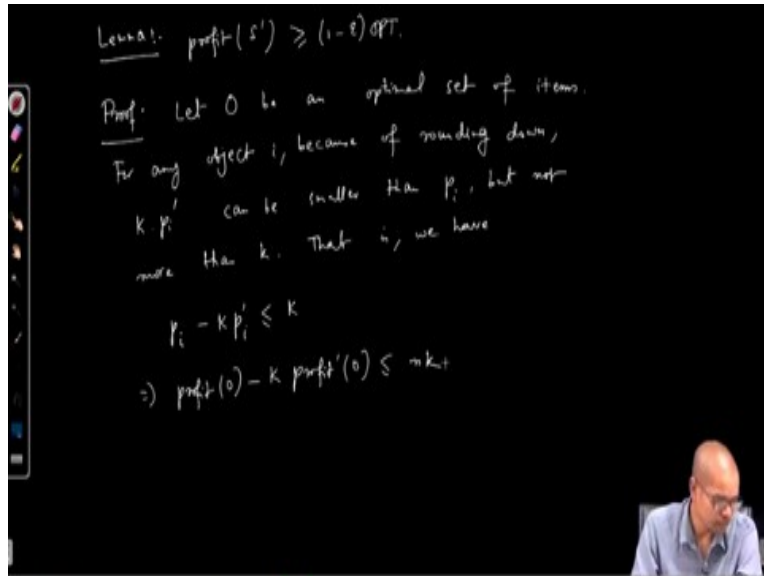 Lemma:. profit(S') ≥ (1-ε) OPT.
Proof. Let O be an optimal set of items.
For any object i, because of rounding down,
K. pi' can be smaller than pi, but not
more than k. That is, we have
pi - K pi' ≤ K
=) profit(O) - K profit'(O) ≤ nk.